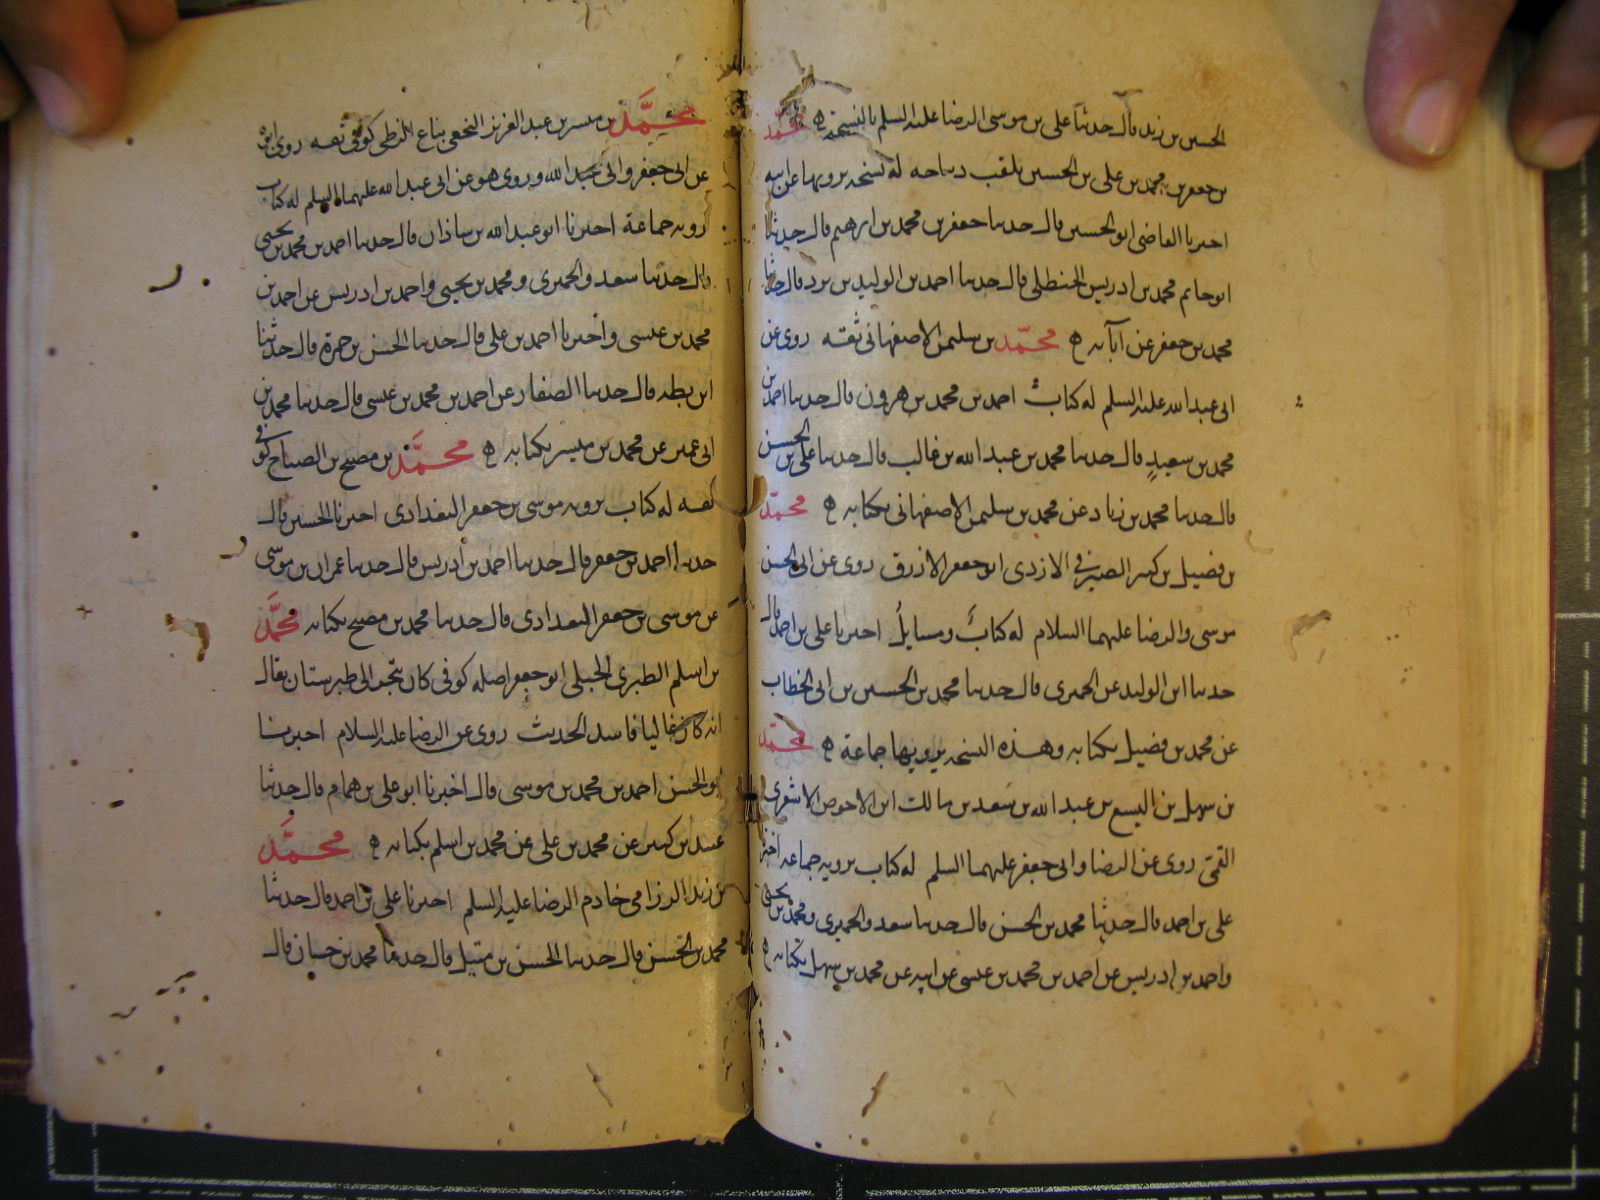 الحسين بن زيد قال حدثنا على بن موسى الرضا عليه السلم بالنسخة ه محمد
بن جعفر بن محمد بن على بن الحسين يلقب ديباجه له نسخه يرويها عن ابيه
اخبرنا القاضى ابو الحسين قال حدثنا جعفر بن محمد بن ابرهيم قال حدثنا
ابو حاتم محمد بن ادريس الحنظلى قال حدثنا احمد بن الوليد بن برد قال حدثنا
محمد بن جعفر عن آبائه ه محمّد بن سليمن الاصفهانى ثقه روى عن
ابى عبد الله عليه السلم له كتاب احمد بن محمد بن هرون قال حدثنا احمد بن
محمد بن سعيد قال حدثنا محمد بن عبد الله بن غالب قال حدثنا على بن الحسن
قال حدثنا محمد بن زياد عن محمد بن سليمن الاصفهانى بكتابه ه محمّد
بن فضيل بن كثير الصيرفى الازدى ابو جعفر الازرق روى عن ابى الحسن
موسى والرضا عليهما السلام له كتاب ومسايل اخبرنا على بن احمد قال
حدثنا ابن الوليد عن الحميرى قال حدثنا محمد بن الحسين بن ابى الخطاب
عن محمد بن فضيل بكتابه وهذه النسخه يرويها جماعة ه محمّد
بن سهل بن اليسع بن عبد الله بن سعد بن مالك ابن الاحوص الاشعرى
القمى روى عن الرضا وابى جعفر عليهما السلم له كتاب يرويه جماعه اخبرنا
على بن احمد قال حدثنا محمد بن الحسن قال حدثنا سعد والحميرى ومحمد بن يحيى
واحمد بن ادريس عن احمد بن محمد بن عيسى عن ابيه عن محمد بن سهل بكتابه ه
محمّد بن ميسر بن عبد العزيز النخعى بياع الزطى كوفى ثقه روى ابوه
عن ابى جعفر وابى عبد الله وروى هو عن ابى عبد الله عليهما السلم له كتاب
يرويه جماعة اخبرنا ابو عبد الله بن شاذان قال حدثنا احمد بن محمد بن يحيى
قال حدثنا سعد والحميرى ومحمد بن يحيى واحمد بن ادريس عن احمد بن
محمد بن عيسى واخبرنا احمد بن على قال حدثنا الحسن بن حمزة قال حدثنا
ابن بطه قال حدثنا الصفار عن احمد بن محمد بن عيسى قال حدثنا محمد بن
ابى عمير عن محمد بن ميسر بكتابه ه محمّد بن مصبح بن الصباح كوفى
ثقه له كتاب يرويه موسى بن جعفر البغدادى اخبرنا الحسين قال
حدثنا احمد بن جعفر قال حدثنا احمد بن ادريس قال حدثنا عمران بن موسى
عن موسى بن جعفر البغدادى قال حدثنا محمد بن مصبح بكتابه محمّد
بن اسلم الطبرى الجبلى ابو جعفر اصله كوفى كان يتجر الى طبرستان يقال
انه كان غاليا فاسد الحديث روى عن الرضا عليه السلام اخبرنا
ابو الحسن احمد بن محمد بن موسى قال اخبرنا ابو على بن همام قال حدثنا
عبيد بن كثير عن محمد بن على عن محمد بن اسلم بكتابه ه محمّد
بن زيد الرزامى خادم الرضا عليه السلم اخبرنا على بن احمد قال حدثنا
محمد بن الحسن قال حدثنا الحسن بن متيل قال حدثنا محمد بن حسان قال